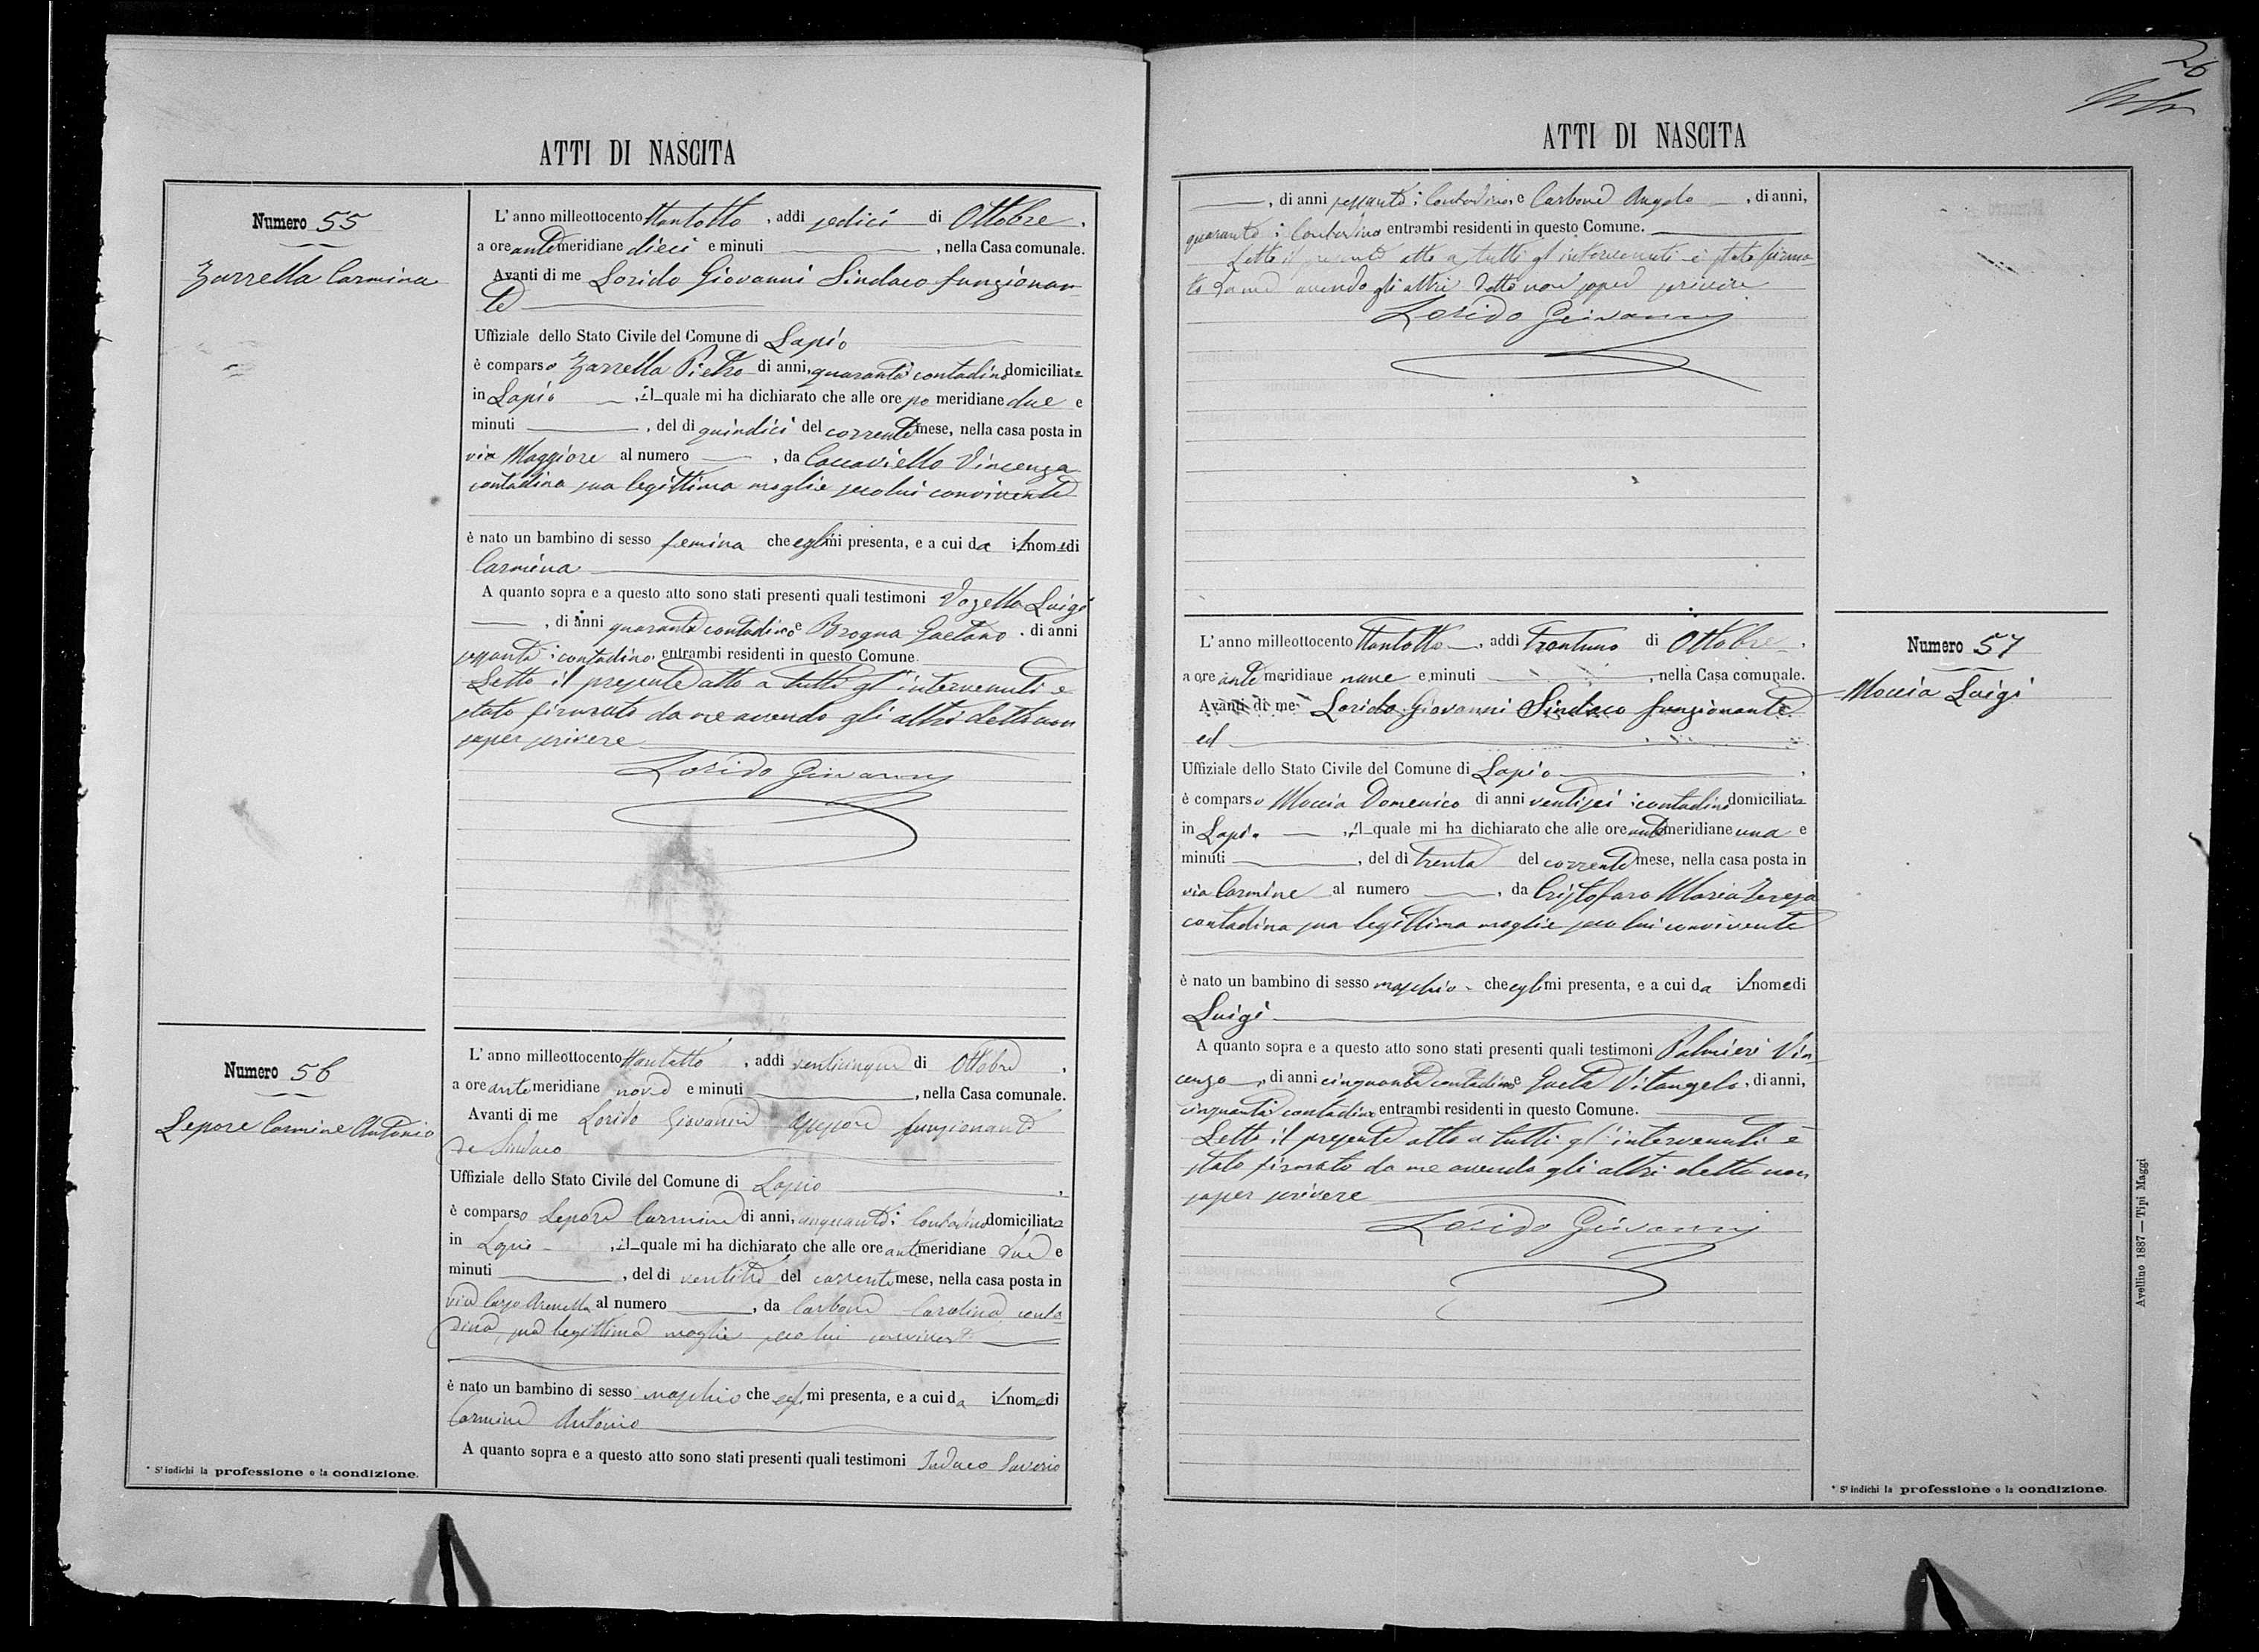 ATTI DI NASCITA
Numero 55
Zarrella Carmina
L'anno milleottocento ttantotto, addì sedici di Ottobre,
a ore ante meridiane dieci e minuti, nella Casa comunale.
Avanti di me Lorido Giovanni Sindaco funzionan-
te
Uffiziale dello Stato Civile del Comune di Lapio
è comparso Zarrella Pietro di anni quaranta contadino domiciliato
in Lapio, il quale mi ha dichiarato che alle ore po meridiane due e
minuti, del dì quindici del corrente mese, nella casa posta in
via Maggiore al numero, da Caccaviello Vincenza
contadina sua legittima moglie seco lui convivente
è nato un bambino di sesso femina che egli mi presenta, e a cui da il nome di
Carmina
A quanto sopra e a questo atto sono stati presenti quali testimoni Vozella Luigi
, di anni quaranta contadino e Brogna Gaetano, di anni
sessanta contadino entrambi residenti in questo Comune.
Letto il presente atto a tutti gl'intervenuti è
stato firmato da me avendo gli altri detto non
saper scrivere
Lorido Giovanni
Numero 56
Lepore Carmine Antonio
L'anno milleottocento ttantotto, addì venticinque di Ottobre,
a ore ante meridiane nove e minuti, nella Casa comunale.
Avanti di me Lorido Giovanni Assessore funzionante
da Sindaco
Uffiziale dello Stato Civile del Comune di Lapio,
è comparso Lepore Carmine di anni, cinquanta: Contadino domiciliato
in Lapio, il quale mi ha dichiarato che alle ore ante meridiane due e
minuti, del dì ventitre del corrente mese, nella casa posta in
via Largo Arenella al numero, da Carbone Carolina conta-
dina, sua legittima moglie seco lui convivente
è nato un bambino di sesso maschio che egli mi presenta, e a cui da il nome di
Carmine Antonio
A quanto sopra e a questo atto sono stati presenti quali testimoni Saverio
* S'indichi la professione o la condizione.
26
ATTI DI NASCITA
, di anni sessanta: Contadino, e Carbone Angelo, di anni,
quaranta: Contadino entrambi residenti in questo Comune.
Letto il presente atto a tutti gl'intervenuti è stato firma-
to da me avendo gli altri detto non saper scrivere
Lorido Giovanni
Numero 57
Moccia Luigi
L'anno milleottocento ttantotto, addì trentuno di Ottobre,
a ore ante meridiane nove e minuti, nella Casa comunale.
Avanti di me Lorido Giovanni Sindaco funzionante
ed
Uffiziale dello Stato Civile del Comune di Lapio,
è comparso Moccia Domenico di anni ventisei: contadino domiciliato
in Lapio, il quale mi ha dichiarato che alle ore ante meridiane una e
minuti, del dì trenta del corrente mese, nella casa posta in
via Carmine al numero, da Cristofaro Maria Teresa
contadina sua legittima moglie seco lui convivente
è nato un bambino di sesso maschio che egli mi presenta, e a cui da il nome di
Luigi
A quanto sopra e a questo atto sono stati presenti quali testimoni Palmieri Vin-
cenzo, di anni cinquanta contadino e Gaeta Vitangelo, di anni,
cinquanta contadino entrambi residenti in questo Comune.
Letto il presente atto a tutti gl'intervenuti è
stato firmato da me avendo gli altri detto non
saper scrivere
Lorido Giovanni
* S'indichi la professione o la condizione.
Avellino 1887 — Tipi Maggi